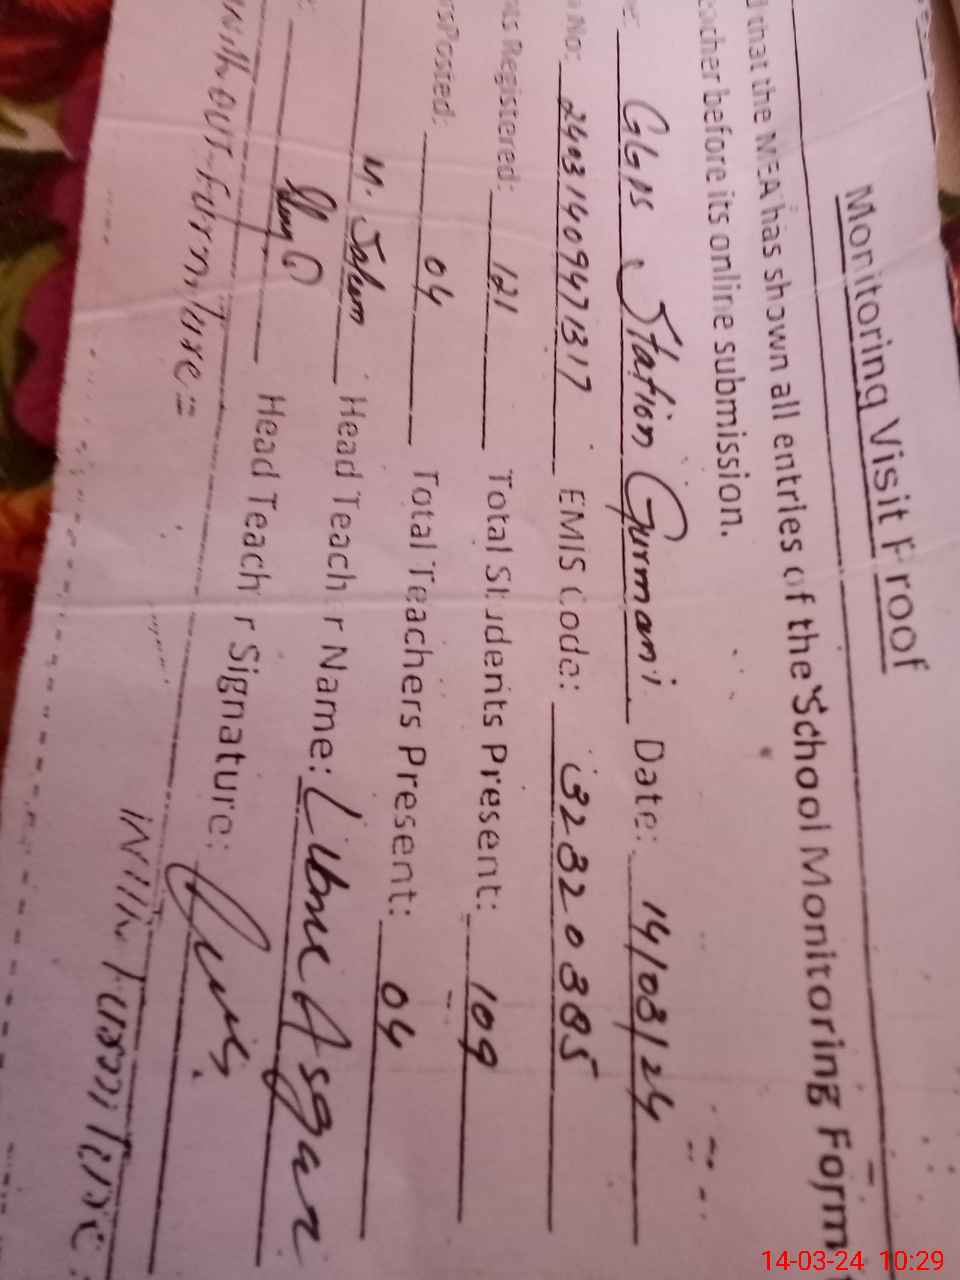 Monitoring Visit Proof
that the MEA has shown all entries of the School Monitoring Form
before its online submission.
GGPS Station Gurmani Date: 14/03/24
No: 24031409471317 EMIS Code: 32320385
Registered: 121 Total Students Present: 109
Posted: 04 Total Teachers Present: 04
M. Saleem Head Teacher Name: Lubna Asgar
Head Teacher Signature:
without furniture = with furniture
14-03-24 10:29